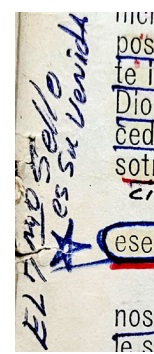 EL 7mo sello
es su Venida
pos
te i
Dio
ced
sotr
ese
nos
le s